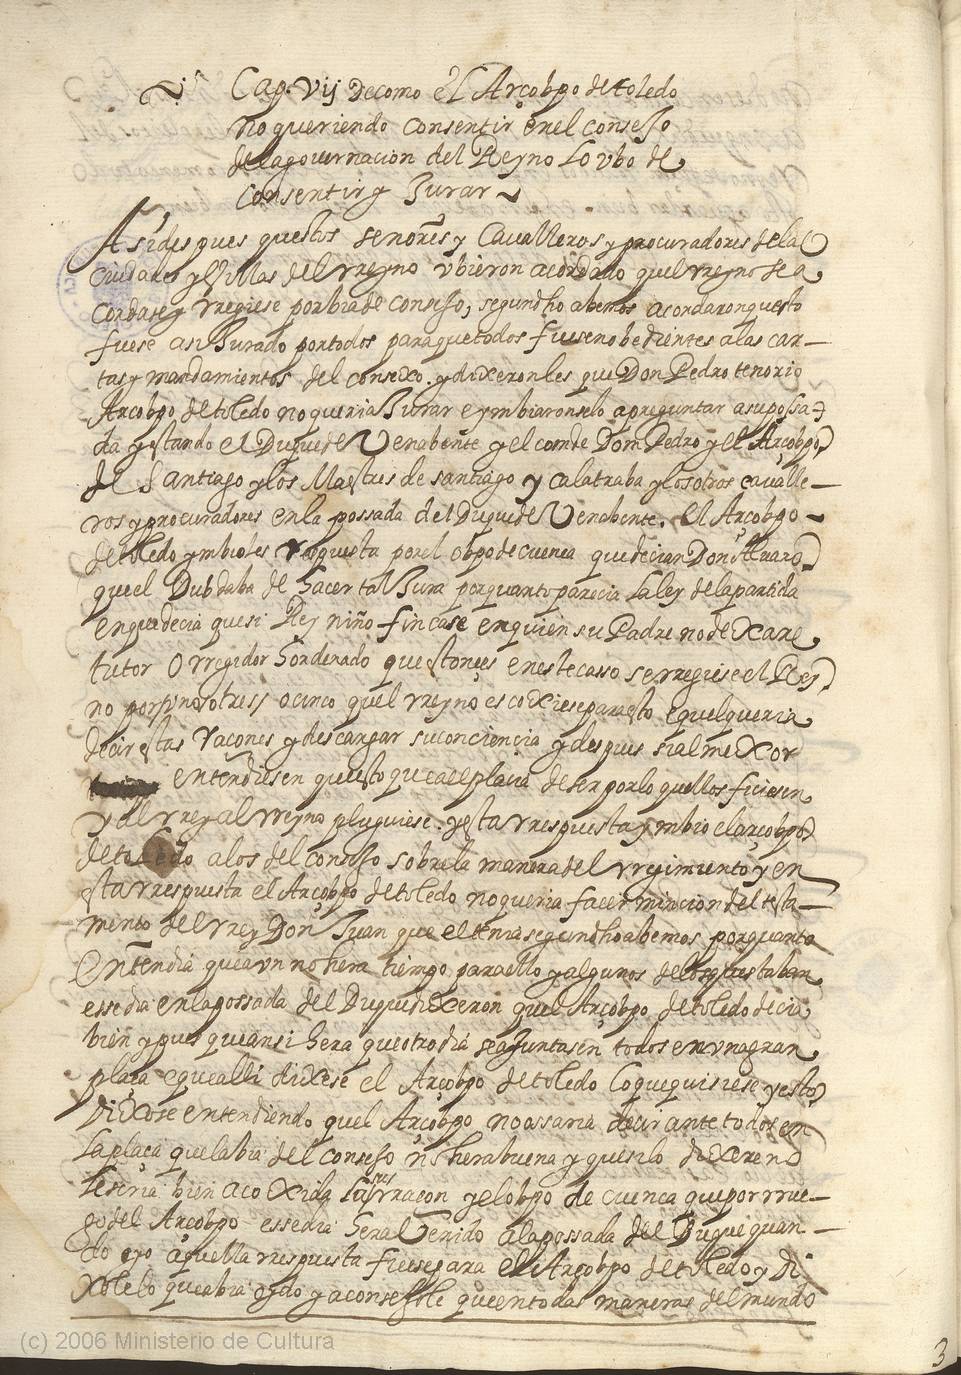 Cap. Vij De como el Arçobpo de toledo
no queriendo consentir en el consejo
de la gouernacion del Reyno Lo vbo de
Consentir y Jurar ~
Asi despues questos señores y Cavalleros y procuradores de las
ciudades y Villas del rreyno vbieron acordado quel rreyno se a
cordase y rregiese por bia de consejo, segun dho abemos acordaron questo
fuese asi Jurado por todos para que todos fuesen obedientes a las car-
tas y mandamientos del consexo. y dixeronles que Don Pedro tenorio
Arçobpo de toledo no queria Jurar e ymbiaronselo a preguntar a su possa-
da y estando el Duque de Venabente y el conde Dom Pedro y el Arçobpo
de Santiago y los Maestres de santiago y calatraba y los otros cavalle-
ros y procuradores en la possada del Duque de Venebente. el Arçobpo -
de toledo ymbioles rrespuesta por el obpo de cuenca que decian Don Aluaro
que el Dubdaba de hacer tal Jura por quanto parecia La ley de la partida
en que decia que si Rey niño fincase en quien su Padre no dexare
tutor O rregidor hordenado que estonçes en este casso se rregiese el Rey
no por vno o tres o cinco quel rreyno escoxiese para esto e quel queria
decir estas raçones y descargar su conciencia y despues si al mexor
entendiesen questo que a el placia de ser por lo quellos ficiesen
y al rrey al rreyno pluguiese. y esta rrespuesta ymbio el arçobpo
de toledo a los del consejo sobre la manera del rregimiento y en
esta rrespuesta el Arçobpo de toledo no queria facer mincion del testa-
mento del rrey Don Juan que el tenia segun dho abemos por quanto
Entendia que aun no hera tiempo para ello y algunos de los questaban
esse dia en la possada del Duque dixeron quel Arçobpo de toledo decia
bien y pues que ansi hera que otro dia se ajuntasen todos en vna gran
plaça e que alli dixese el Arçobpo de toledo Lo que quisiese y esto
Dixose entendiendo quel Arçobpo no ossaria decir ante todos en
La plaça que la bia del consejo no hera buena y que si lo dixeren
le seria bien acoxida su rraçon y el obpo de cuenca que por rrue-
go del Arçobpo esse dia hera Venido a la possada del Duque quan-
do oyo aquella rrespuesta fuese para el Arçobpo de toledo y Di
xole lo que abia oydo y aconsejole que en todas maneras del mundo
3
(c) 2006 Ministerio de Cultura